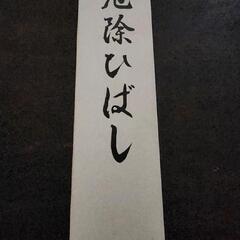 厄除ひばし